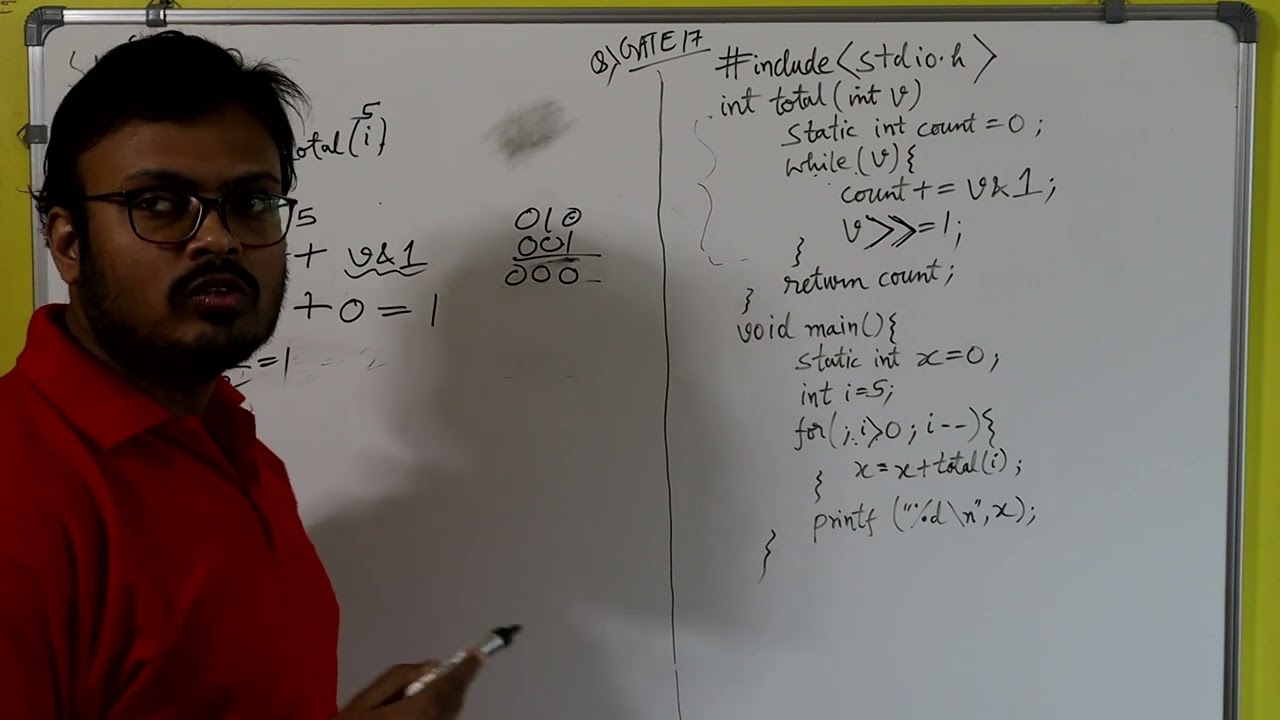 Q) GATE 17
#include<stdio.h>
int total(int v)
static int count=0;
while(v){
count+= v&1;
v>>=1;
}
return count;
}
void main(){
static int x=0;
int i=5;
for(;i>0;i--){
x=x+total(i);
}
printf ("%d\n",x);
}
5
otal(i)
5
+ v&1
+0=1
=1
010
001
000